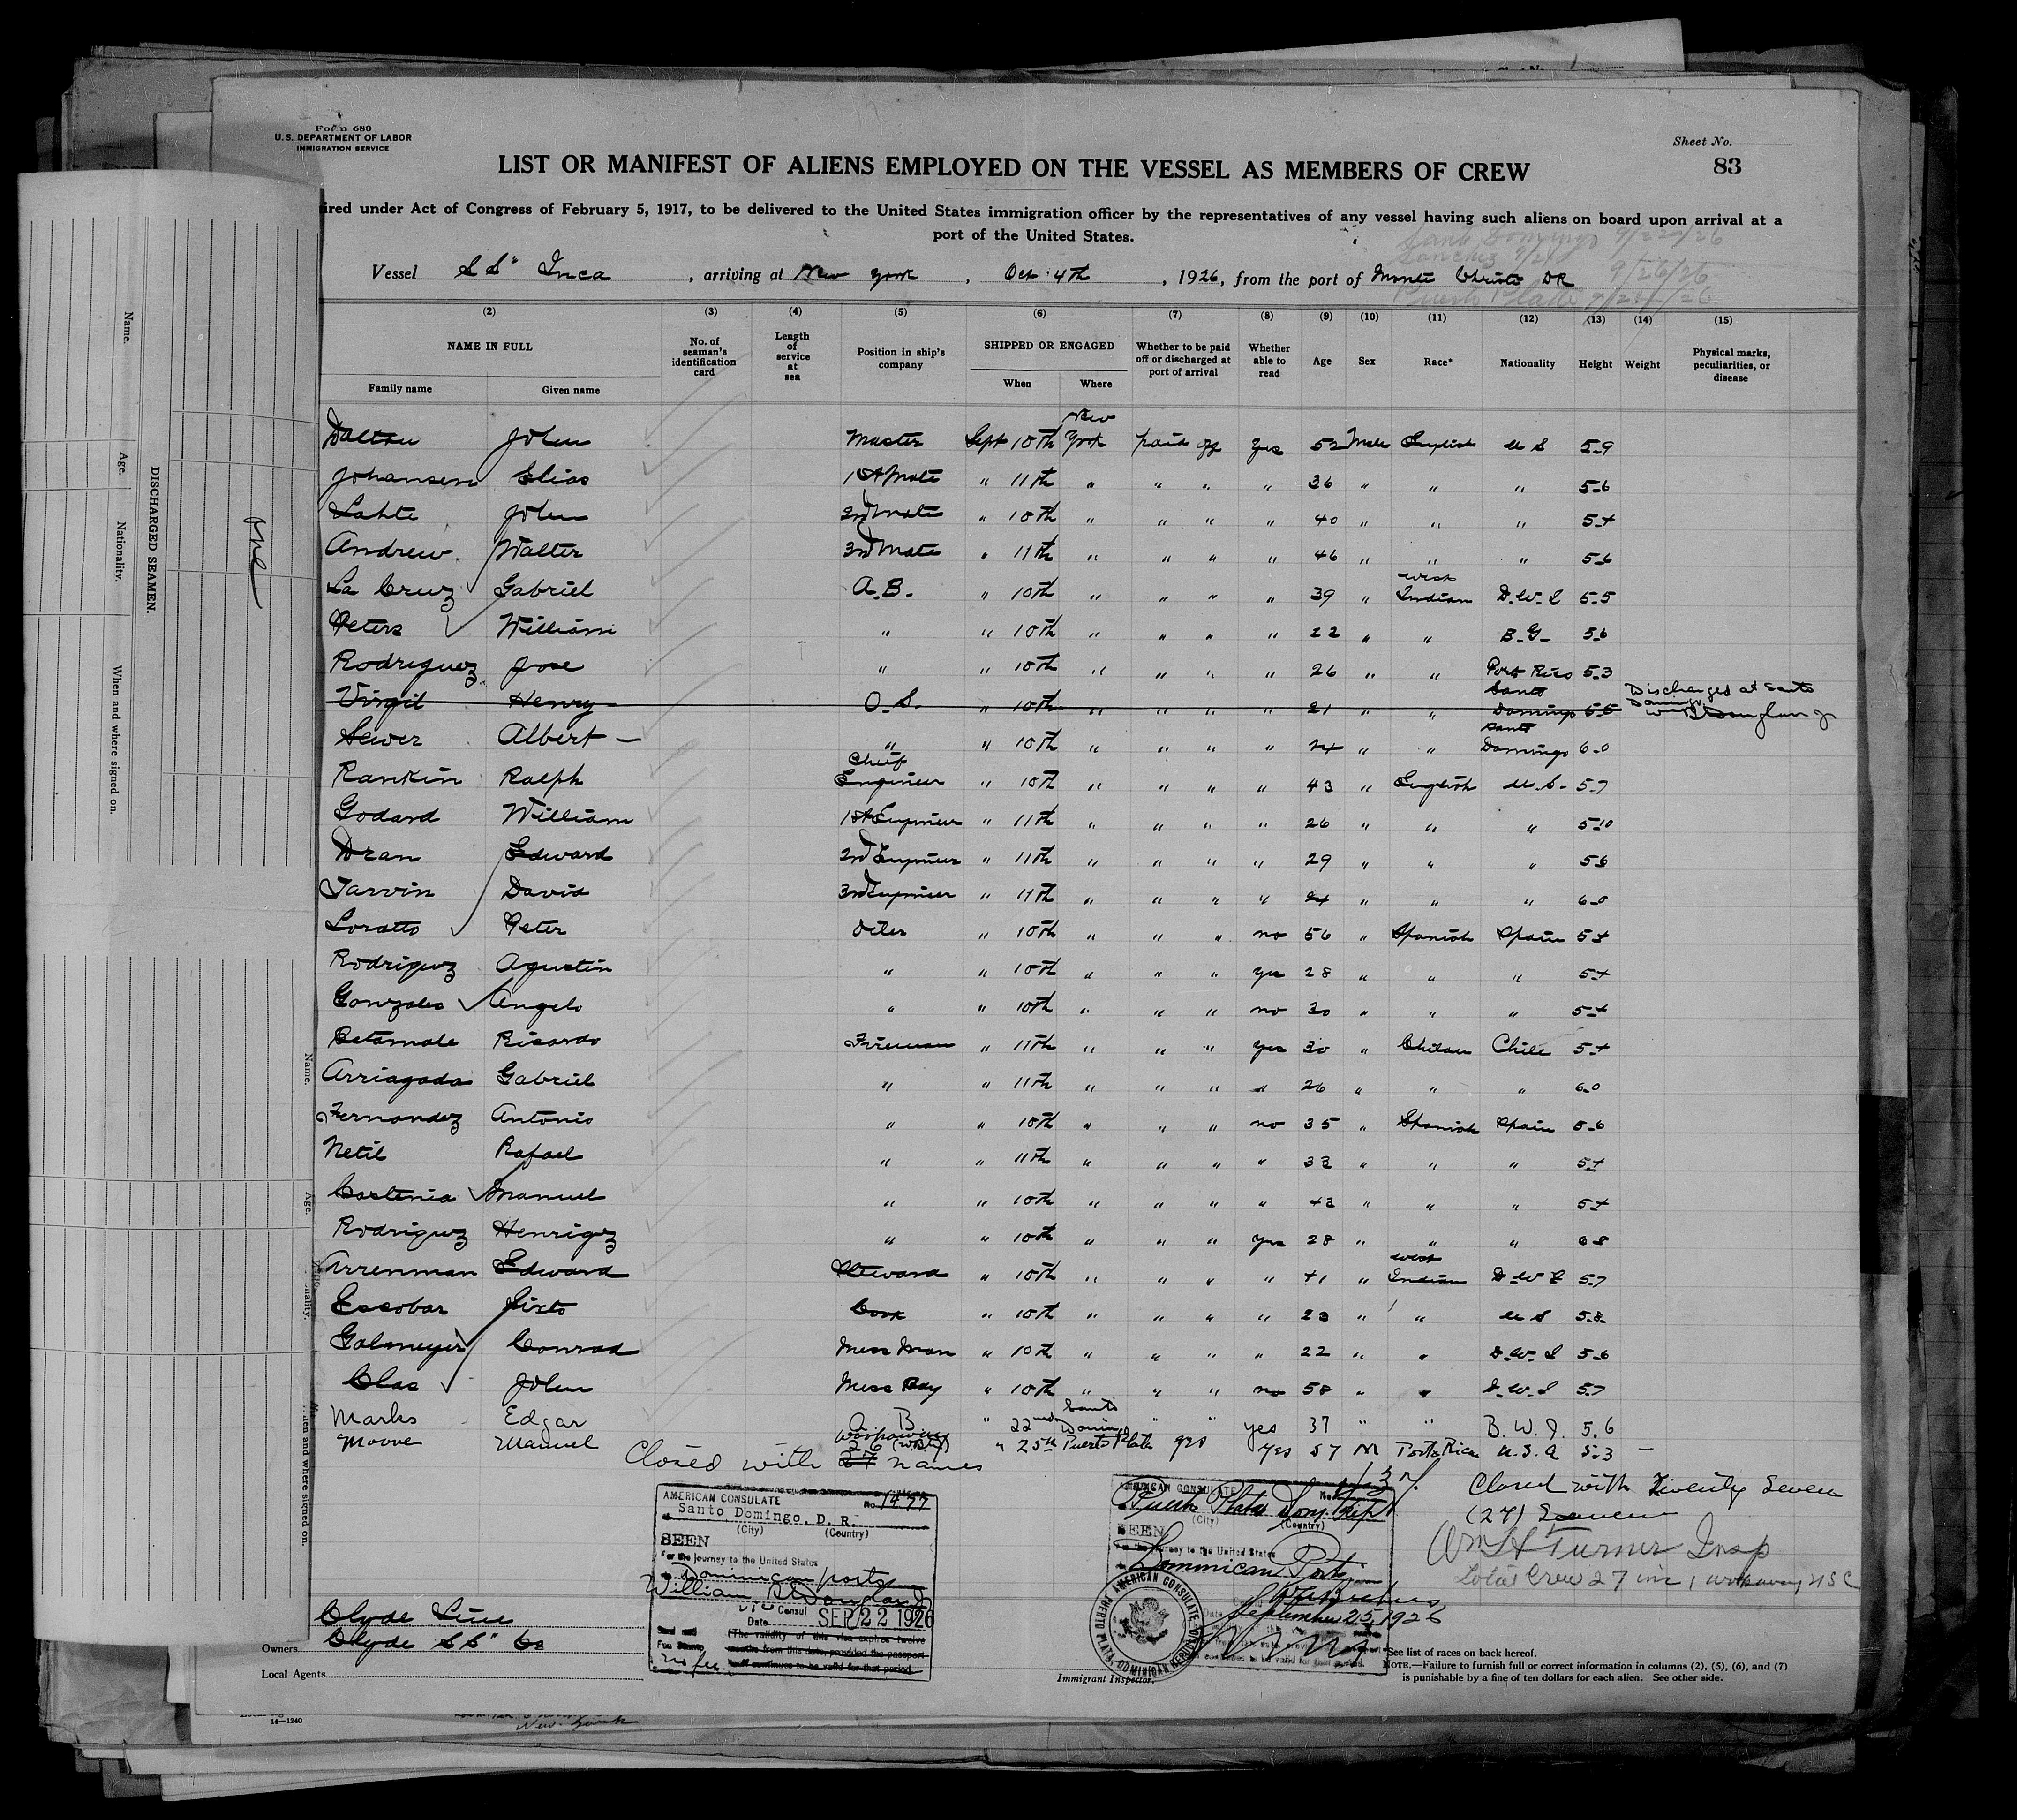 Form 680
U.S. DEPARTMENT OF LABOR
IMMIGRATION SERVICE
Sheet No.
83
LIST OR MANIFEST OF ALIENS EMPLOYED ON THE VESSEL AS MEMBERS OF CREW
ired under Act of Congress of February 5, 1917, to be delivered to the United States immigration officer by the representatives of any vessel having such aliens on board upon arrival at a
port of the United States.
Santo Domingo 9/22/26
Sanchez
9/26/26
Puerto Plata
Vessel SS" Inca, arriving at New York, Oct. 4th, 1926, from the port of Monte Christo DR
(2) (3) (4) (5) (6) (7) (8) (9) (10) (11) (12) (13) (14) (15)
NAME IN FULL No. of seaman's identification card Length of service at sea Position in ship's company SHIPPED OR ENGAGED Whether to be paid off or discharged at port of arrival Whether able to read Age Sex Race* Nationality Height Weight Physical marks, peculiarities, or disease
Family name Given name When Where
Dalton John Master Sept 10th New York paid off Yes 52 Male English U S 5-9
Johansen Elias 1st Mate " 11th " " " " 36 " " " 5-6
Lahte John 2nd Mate " 10th " " " " 40 " " " 5-4
Andrew Walter 3rd Mate " 11th " " " " 46 " " " 5-6
La Cruz Gabriel A.B. " 10th " " " " 39 " West Indian D.W.I 5-5
Peters William " " 10th " " " " 22 " " B.G- 5-6
Rodriguez Jose " " 10th " " " " 26 " " Port Rico 5-3
Virgil Henry O.S. " 10th " " " " 21 " " Santo Domingo 5-5 Discharged at Santo Domingo
Sewer Albert " " 10th " " " " 24 " " Santo Domingo 6-0
Rankin Ralph Chief Engineer " 10th " " " " 43 " English U.S. 5-7
Godard William 1st Engineer " 11th " " " " 26 " " " 5-10
Dran Edward 2nd Engineer " 11th " " " " 29 " " " 5-6
Tarvin David 3rd Engineer " 11th " " " " 24 " " " 6-0
Loratto Peter Oiler " 10th " " " no 56 " Spanish Spain 5-4
Rodriguz Agustin " " 10th " " " yes 28 " " " 5-4
Gonzales Angelo " " 10th " " " no 30 " " " 5-4
Retamale Ricardo Fireman " 11th " " " yes 30 " Chilan Chile 5-4
Arriagada Gabriel " " 11th " " " " 26 " " " 6-0
Fernandez Antonio " " 10th " " " no 35 " Spanish Spain 5-6
Netil Rafael " " 11th " " " " 33 " " " 5-4
Castenia Manuel " " 10th " " " " 43 " " " 5-4
Rodriguz Henriqz " " 10th " " " yes 28 " " " 6-8
Arrenman Edward Steward " 10th " " " " 41 " West Indian D.W.I 5-7
Escobar Sixto Cook " 10th " " " " 23 " " U S 5-8
Galmeyer Conrad Mess Man " 10th " " " " 22 " " D.W.I 5-6
Clas John Mess Boy " 10th " " " no 58 " " D.W.I 5-7
Marks Edgar A B " 22nd Santo Domingo " " yes 37 " " B.W.I. 5.6
Moore Manuel Workaway " 25th Puerto Plata yes yes 57 M Porto Rican U.S.A 5-3
Closed with 27 26 names
AMERICAN CONSULATE No. 1477
Santo Domingo, D. R.
(City) (Country)
SEEN
For the journey to the United States
Dominican ports
Vice Consul
Date SEP 22 1926
(The validity of this visa expires twelve
months from this date, provided the passport
itself continues to be valid for that period.
no fee
AMERICAN CONSULATE No. 137
Puerto Plata Dom. Rep.
(City) (Country)
SEEN
For the journey to the United States
Dominican Ports
Date September 25, 1926
AMERICAN CONSULATE
PUERTO PLATA, DOMINICAN REPUBLIC
Closed with Twenty Seven
(27) Seamen
Wm H Turner Insp
Total Crew 27 inc 1 workaway USC
Clyde Line
Owners Clyde SS" Co
Local Agents
Immigrant Inspector.
See list of races on back hereof.
NOTE.—Failure to furnish full or correct information in columns (2), (5), (6), and (7)
is punishable by a fine of ten dollars for each alien. See other side.
14—1240
New York
DISCHARGED SEAMEN.
Name.
Age.
Nationality.
When and where signed on.
one
Name.
Age.
When and where signed on.